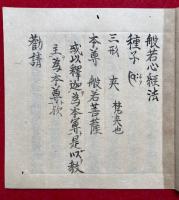 般若心経法
種子
三形 夾 梵夾也
本尊 般若菩薩
或以釈迦為本尊是以教
主為本尊歟
勧請